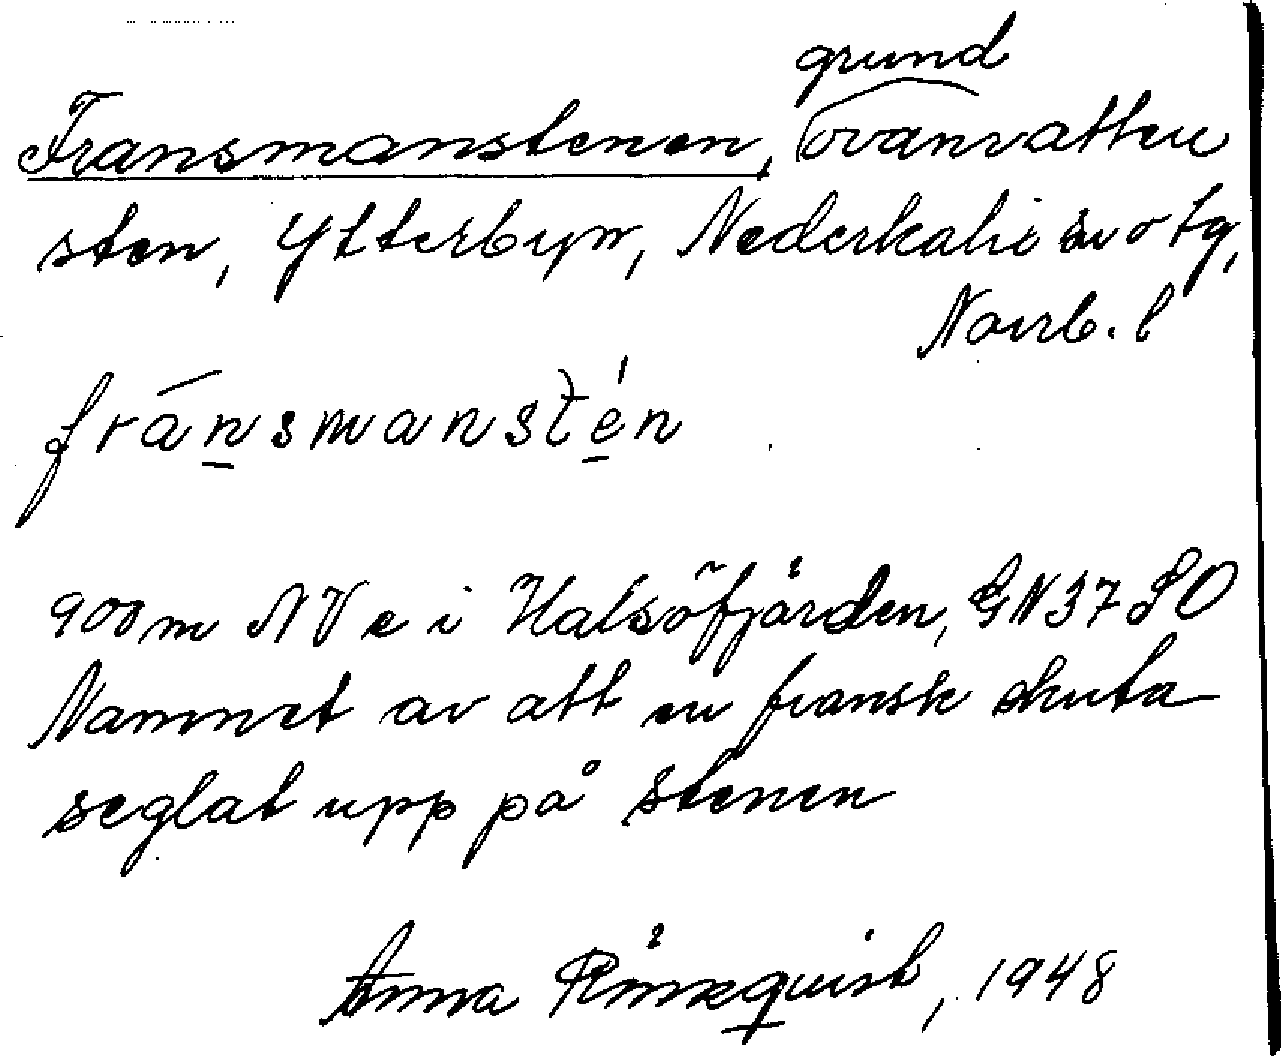 grund
Fransmanstenen, ovanvatten
sten, Ytterbyn, Nederkalix sn o tg,
Norrb. l
fránsmanstén
900 m NV e i Halsöfjärden, GN37 SO
Namnet av att en fransk skuta
seglat upp på stenen
Anna 1948